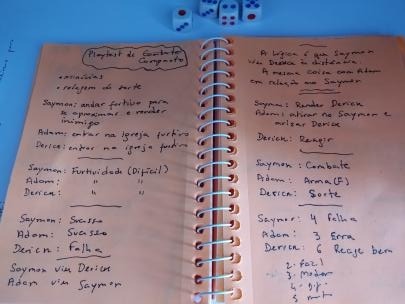 Playtest de Combate
Conjunto
• iniciativas
• rolagem de sorte
Saymon: andar furtivo para
se aproximar e render
inimigo
Adam: entrar na igreja furtivo
Derick: entrar na igreja furtivo
Saymon: Furtividade (Difícil)
Adam: " "
Derick: " "
Saymon: Sucesso
Adam: Sucesso
Derick: Falha
Saymon viu Derick
Adam viu Saymon
A lógica é que Saymon
viu Derick à distância.
A mesma coisa com Adam
em relação ao Saymon
Saymon: Render Derick
Adam: atirar no Saymon e
avisar Derick
Derick: Reagir
Saymon: Combate
Adam: Arma (F)
Derick: Sorte
Saymon: 4 Falha
Adam: 3 Erra
Derick: 6 Reage bem
2- Fácil
3- Moder
4- Dif.
5